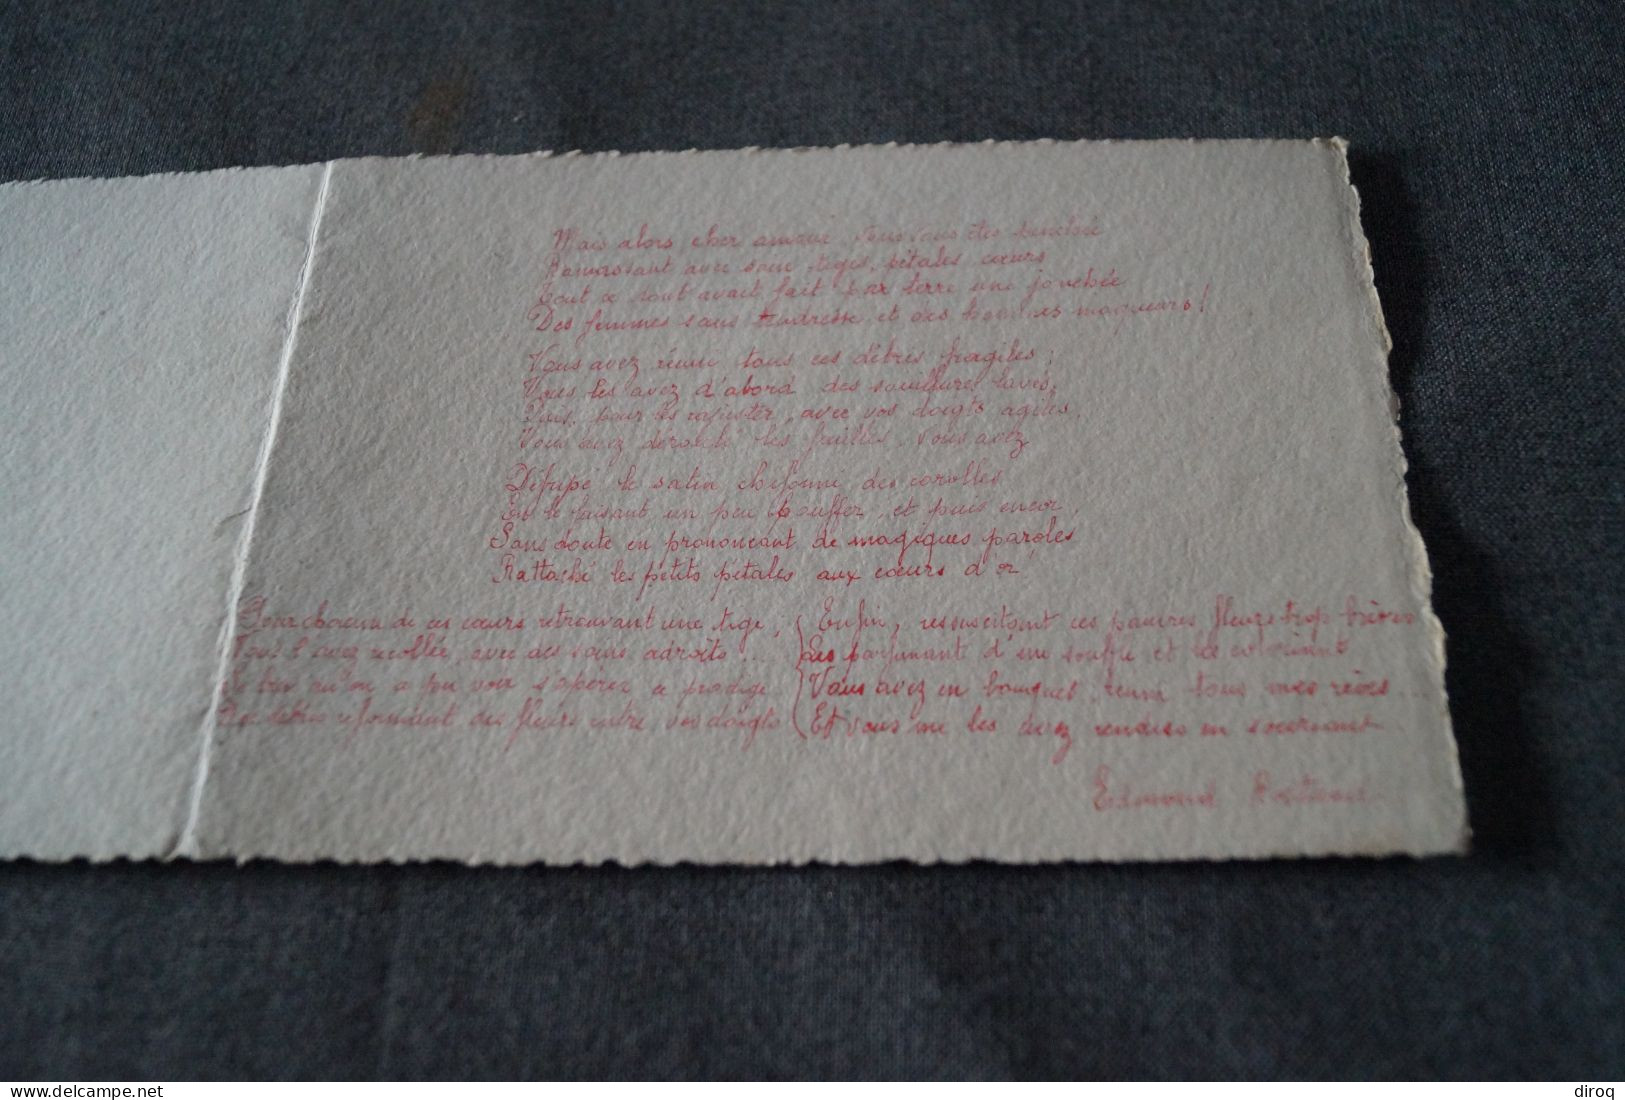 Mais alors cher amour, vous vous êtes penchée
Ramassant avec soin tiges, pétales cœurs
Tout ce dont avait fait par terre une jonchée
Des femmes sans tendresse et des hommes moqueurs!
Vous avez réuni tous ces débris fragiles;
Vous les avez d'abord des souillures lavés,
Puis, pour les rajuster, avec vos doigts agiles,
Vous avez les feuilles, vous avez
Défripé le satin chiffonné des corolles
En le faisant un peu bouffer, et puis encor,
Sans doute en prononçant de magiques paroles
Rattaché les petits pétales aux cœurs d'or
Pour chacun de ces cœurs retrouvant une tige,
Vous l'avez recollée, avec des soins adroits...
Si bien qu'on a pu voir s'opérer ce prodige
Des débris reformant des fleurs entre vos doigts
Enfin, ressuscitant ces pauvres fleurs trop brèves
Les parfumant d'un souffle et les colorant
Vous avez en bouquet, réuni tous mes rêves...
Et vous me les avez rendus en souriant
Edmond Rostand
delcampe.net
diroq